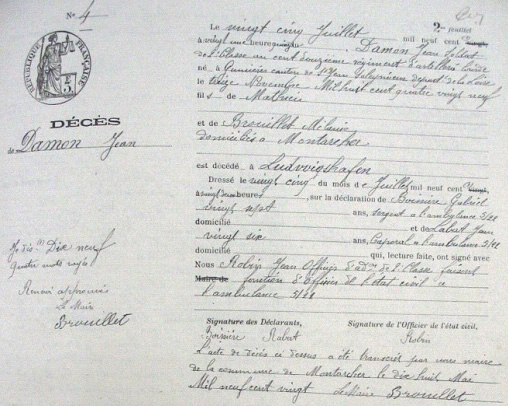 N° 4
2e feuillet
RÉPUBLIQUE FRANÇAISE
DÉCÈS
de Damon Jean
Je dis "Dix neuf"
quatre mots rayés
Renvoi approuvés
Le Maire
Brouillet
Le vingt cinq Juillet mil neuf cent Vingt,
à vingt une heures Damon Jean soldat
de 1e Classe au cent douzième régiment d'artillerie lourde
né à canton de St Jean départ de la Loire
le treize Novembre Mil huit cent quatre vingt neuf
fils de Mathieu
et de Brouillet Mélanie
domiciliés à Montarcher
est décédé à Ludwigshafen
Dressé le vingt cinq du mois de Juillet mil neuf cent Vingt,
à vingt heures , sur la déclaration de Boissière Gabriel
vingt sept ans, sergent à l'ambulance 3/21
domicilié et de Jean
vingt six ans, Caporal à l'ambulance 3/21
domicilié qui, lecture faite, ont signé avec
Nous Robin Jean Officier d'adon de 1e Classe faisant
Maire de fonction d'Officier de l'état civil à
l'ambulance 3/21
Signature des Déclarants, Signature de l'Officier de l'état civil,
Boissière Robin
L'acte de décès ci dessus a été transcrit par nous maire
de la commune de Montarcher le dix huit Mai
Mil neuf cent vingt Le Maire Brouillet